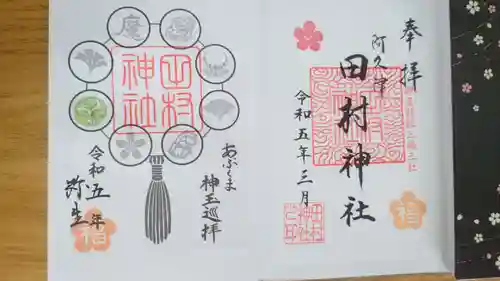 奉拝
阿久津
田村神社
令和五年三月
田村神社
あぶくま
神玉巡拝
令和五年
弥生
福
福